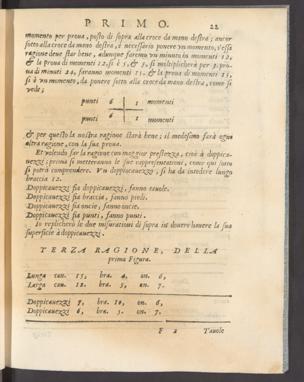 PRIMO. 22
momento per proua, posto di sopra alla croce da mano destra; ancor
sotto alla croce da mano destra, è necessario ponere vn momento, s'essa
ragione deue star bene, adunque faremo vn minuto in momenti 12,
& la proua di momenti 12, si è 5, & 3, si multiplicherà per 3. pro-
ua di minuti faranno momenti 15. & la proua di momenti 15,
si è vn momento, da ponere sotto alla croce da mano destra, come si
vede;
punti 6 1 momenti
punti 6 1 momenti
& per questo la nostra ragione starà bene; il medesimo farà ogni
altra ragione, con la sua proua.
Et volendo far la ragione con maggior prestezza, cioè à doppica-
uezzi: prima si metteranno le sue rappresentationi, come qui sotto
si potrà comprendere. Vn doppicauezzo, si ha da intedere lungo
braccia 12.
Doppicauezzi fia doppicauezzi, fanno tauole.
Doppicauezzi fia braccia, fanno piedi.
Doppicauezzi fia oncie, fanno oncie.
Doppicauezzi fia punti, fanno punti.
Io replicherò le due misurationi di sopra
superficie à doppicauezzi.
TERZA RAGIONE, DELLA
prima Figura.
Lunga cau. 15, bra. 4, on. 6,
Larga cau. 12. bra. 5, on. 7.
Doppicauezzi 7, bra. 10, on. 6,
Doppicauezzi 6, bra. 5. on. 7.
F 2 Tauole